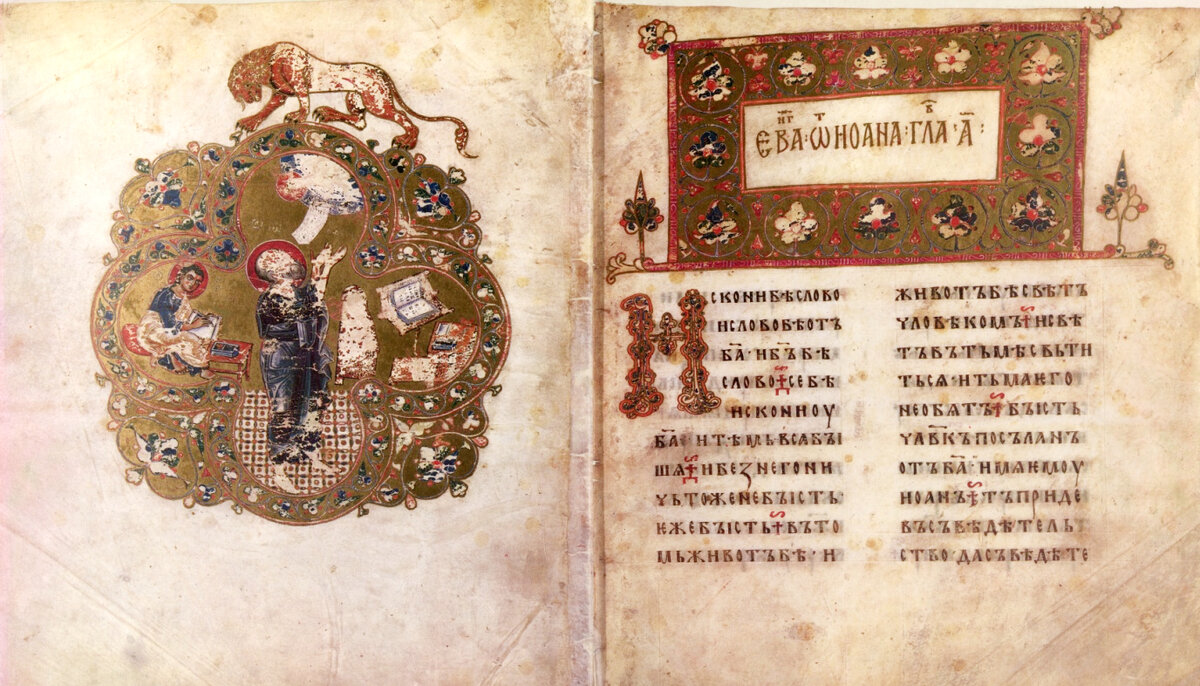 ЕВАНГ ѾИОАНА ГЛАВ А҃
ИСКОНИБѢСЛОВО
ИСЛОВОБѢОТЪ
БА҃·ИБЪ҃БѢ
СЛОВО·СЕБѢ
ИСКОНИОУ
БА҃·ИТѢМЬВСАБЪІ
ШѦ·ИБЕЗНЕГОНИ
ЧЬТОЖЕНЕБЪІСТЬ
ѤЖЕБЪІСТЬ·ВЪТО
МЬЖИВОТЪБѢ·И
ЖИВОТЪБѢСВѢТЪ
ЧЛОВѢКОМЪ·ИСВѢ
ТЪВЪТЬМѢСВЬТИ
ТЬСѦ·ИТЬМАѤГО
НЕОБѦТЪ·БЪІСТЬ
ЧЛВ҃КЪПОСЪЛАНЪ
ОТЪБА҃·ИМѦѤМОУ
ИОАНЪ·ТЪПРИДЕ
ВЪСЪВѢДѢТЕЛЬ
СТВО·ДАСЪВѢДѢТЕ